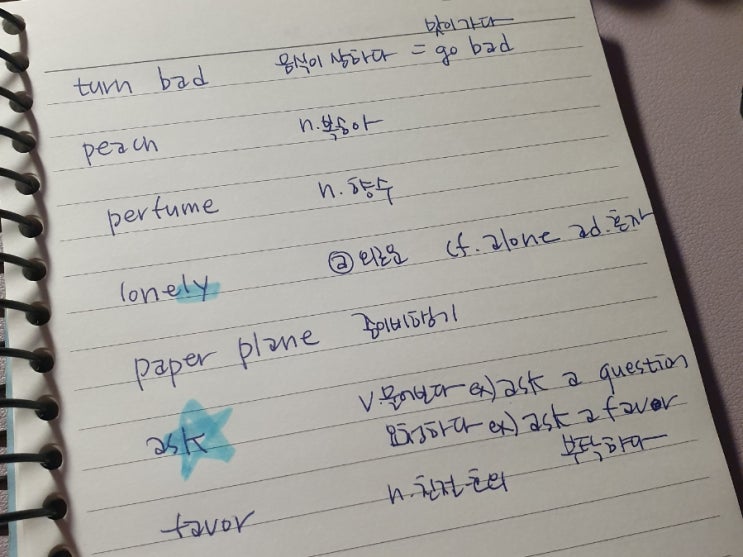 맛이가다
turn bad 음식이 상하다 = go bad
peach n.복숭아
perfume n.향수
lonely ⓐ외로운 cf. alone ad.혼자
paper plane 종이비행기
ask v.물어보다 ex) ask a question
요청하다 ex) ask a favor
부탁하다
favor n.친절, 호의